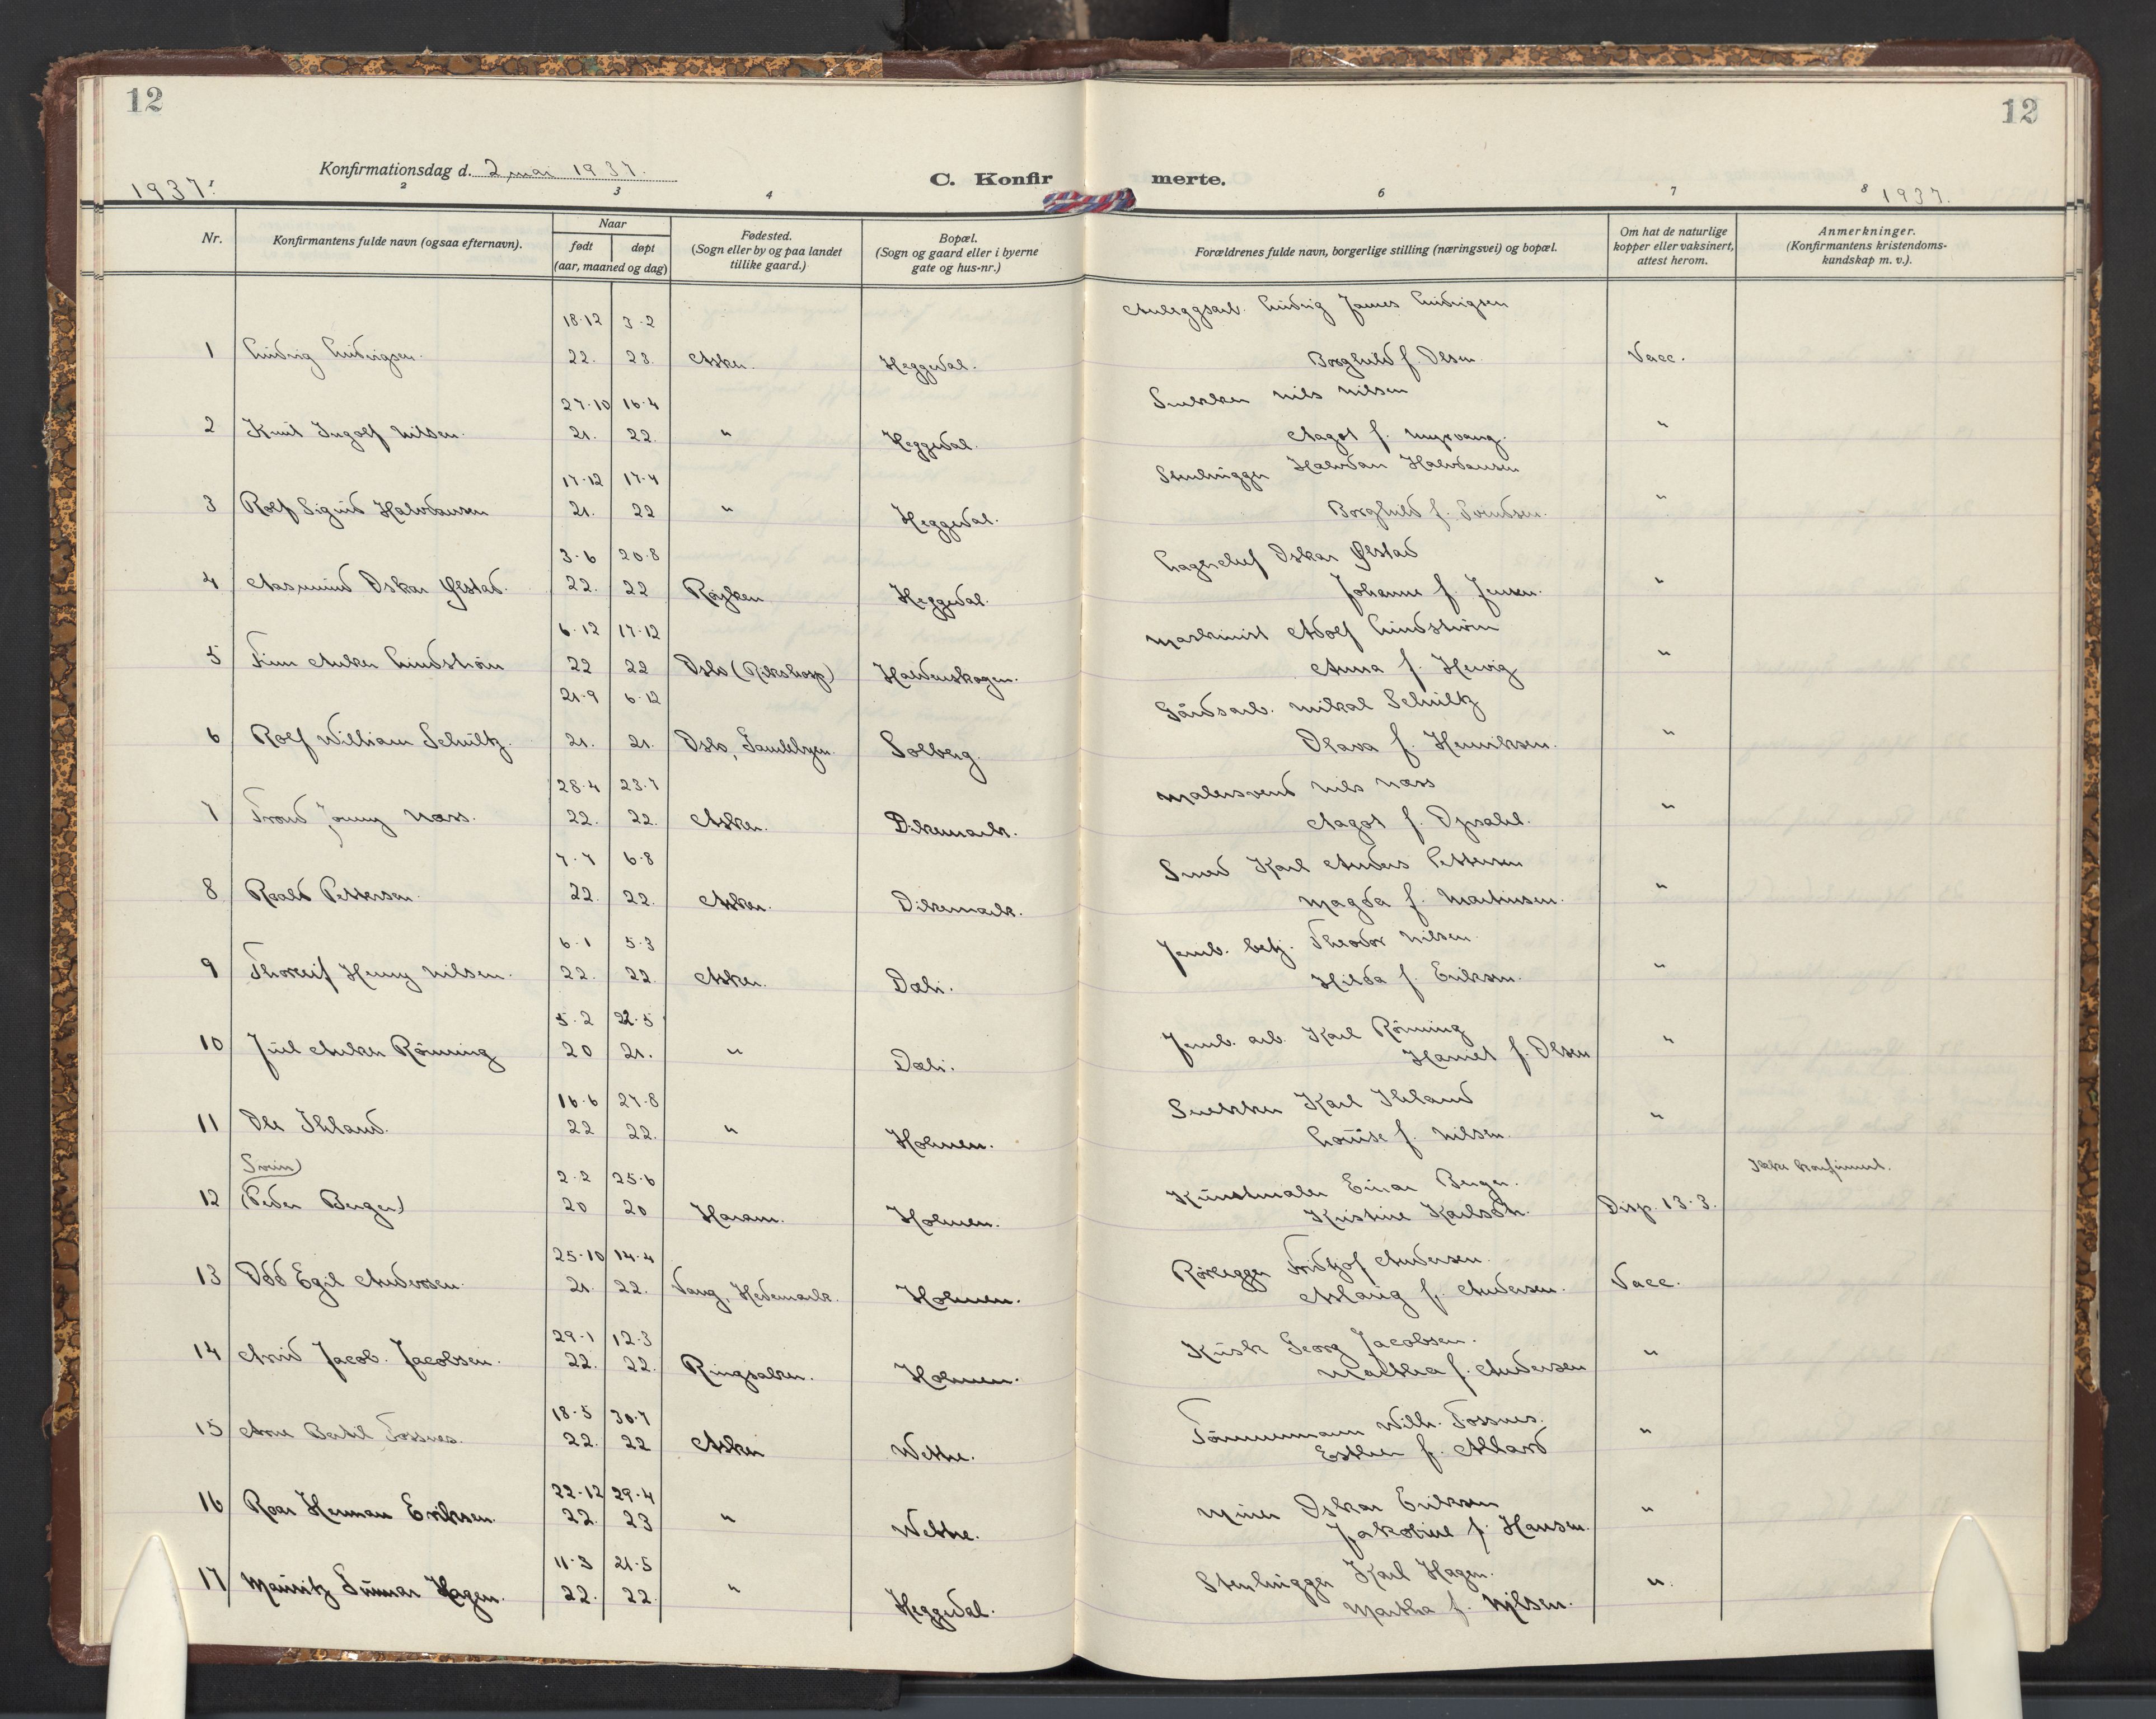 12
12
Konfirmationsdag d. 2 mai 1937.
1937.
C. Konfirmerte.
1937.
2 3 4 6 7 8
Nr.
Konfirmantens fulde navn (ogsaa efternavn).
Naar
født
døpt
(aar, maaned og dag)
Fødested.
(Sogn eller by og paa landet
tillike gaard.)
Bopæl.
(Sogn og gaard eller i byerne
gate og hus-nr.)
Forældrenes fulde navn, borgerlige stilling (næringsvei) og bopæl.
Om hat de naturlige
kopper eller vaksinert,
attest herom.
Anmerkninger.
(Konfirmantens kristendoms-
kundskap m. v.).
18-12 3-2 Anleggsarb. Ludvig James Ludvigsen
1 Ludvig Ludvigsen. 22. 23. Asker. Heggedal. Borghild f. Olsen Vacc.
27-10 16-4 Snekker Nils Nilsen
2 Knut Ingolf Nilsen. 21. 22. " Heggedal. Aagot f. Myrvang. "
17-12 17-4 Stenhugger Halvdan Halvdansen
3 Rolf Sigurd Halvdansen 21. 22 " Heggedal. Borghild f. Svendsen. "
3-6 20-8 Lagerchef Oskar Ølstad
4 Aasmund Oskar Ølstad. 22. 22 Røyken Heggedal. Johanne f. Jensen. "
6-12 17-12 Maskinist Adolf Lindstrøm
5 Finn Anker Lindstrøm 22 22 Oslo (Rikshosp) Haldenskogen. Anna f. Hervig "
21-9 6-12 Gårdsarb. Mikal Schultz
6 Rolf William Schultz. 21. 21. Oslo, Gamlebyen. Solberg. Olava f. Henriksen. "
28-4 23-7 Malersvend Nils Næss
7 Trond Jonny Næss. 22. 22. Asker. Dikemark. Aagot f. Dyrdahl. "
7-7 6-8 Smed Karl Anders Pettersen
8 Roald Pettersen. 22. 22. Asker. Dikemark. Magda f. Martinsen. "
6-1 5-3 Jernb. betj. Theodor Nilsen.
9 Thorleif Henry Nilsen. 22. 22. Asker. Dæli. Hilda f. Eriksen. "
5-2 22-5 Jernb. arb. Karl Rönning
10 Juel Anker Rönning 20 21. " Dæli. Harriet f. Olsen "
16-6 27-8 Snekker Karl Ihland
11 Ole Ihland. 22 22. " Holmen. Louise f. Nilsen. "
Svein
2-2 25-6 Kunstmaler Einar Berger. Ikke konfirmert.
12 (Peder Berger) 20 20 Haram. Holmen. Kristine Karlsdtr. Disp. 13-3.
25-10 14-4 Rørlegger Fridtjof Andersen.
13 Odd Egil Andersen. 21. 22. Vang, Hedemark. Holmen. Aslaug f. Andersen. Vacc.
29-1 12-3 Kusk Georg Jacobsen.
14 Arvid Jacob. Jacobsen. 22. 22. Ringsaker. Holmen. Malthea f. Andersen "
18-5 30-7 Tømmermann Wilh. Fossnes.
15 Arne Bertil Fossnes. 22. 22 Asker Wettre. Esther f. Ahlard "
22-12 29-4 Miner Oskar Eriksen
16 Roar Herman Eriksen. 22. 23 " Wettre. Jakobine f. Hansen. "
11-3 21-5 Stenhugger Karl Hagen.
17 Mauritz Gunnar Hagen. 22. 22. " Heggedal. Martha f. Nilsen. "